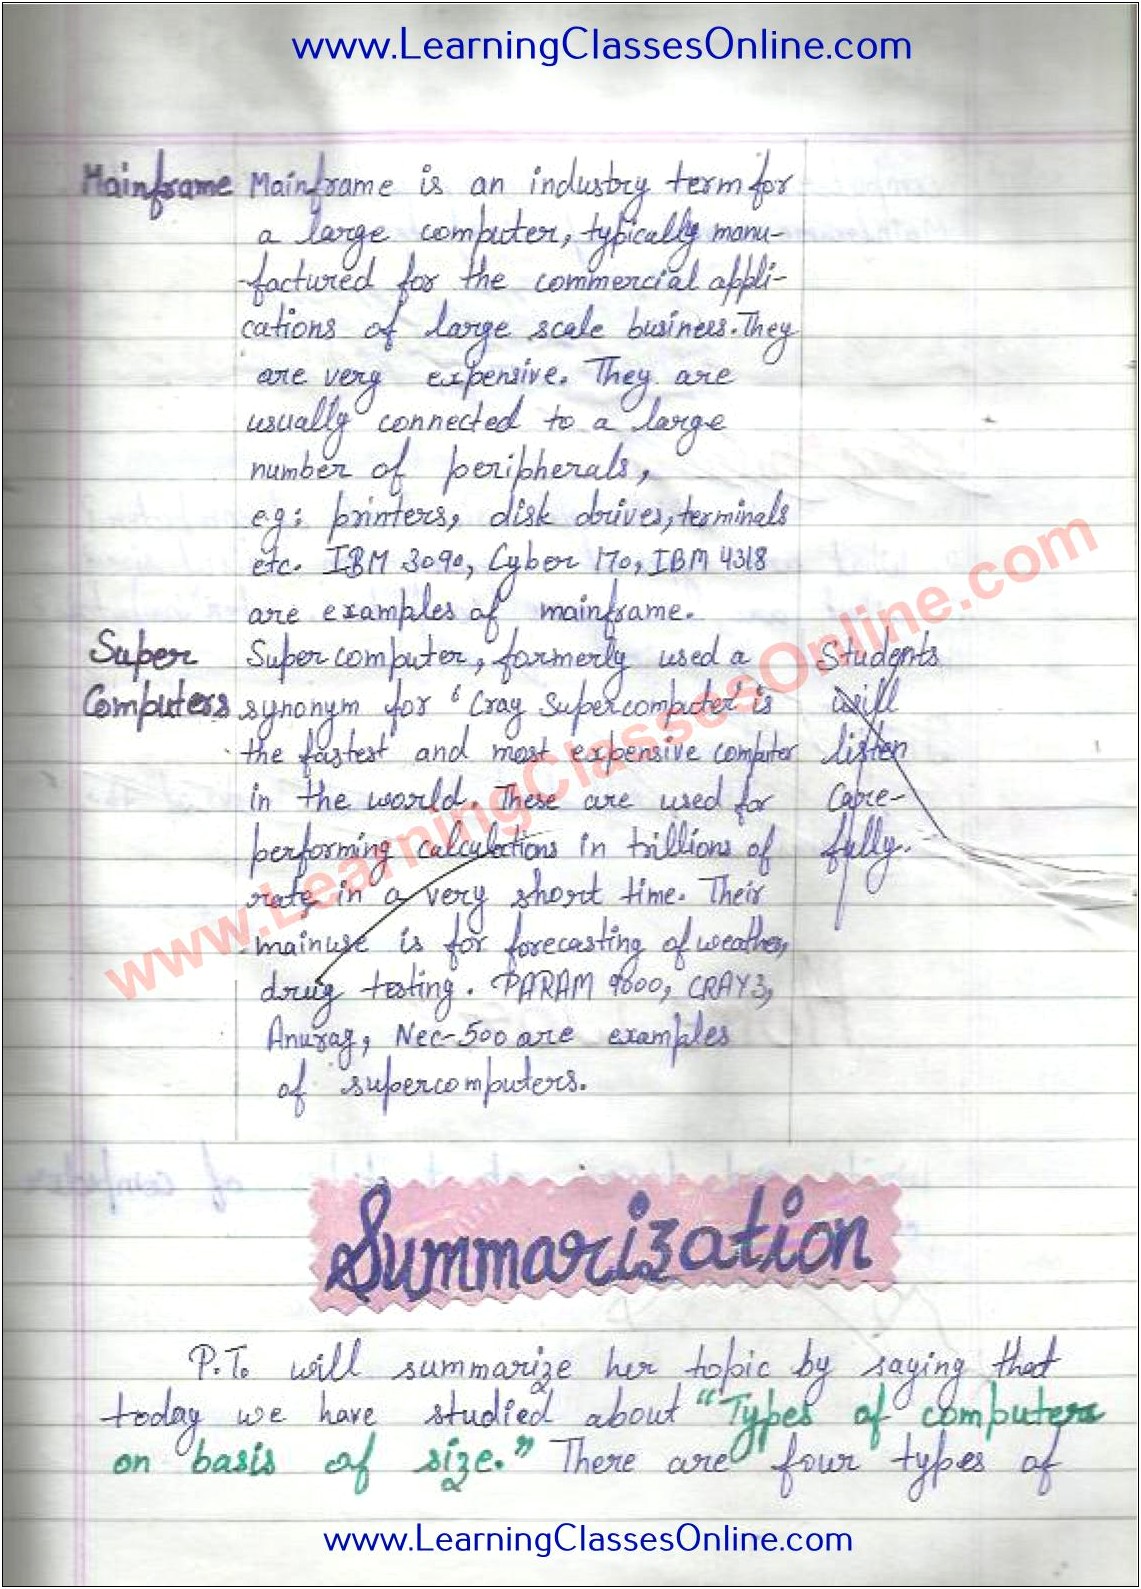 www.LearningClassesOnline.com
Mainframe Mainframe is an industry term for
a large computer, typically manu-
-factured for the commercial appli-
cations of large scale business. They
are very expensive. They are
usually connected to a large
number of peripherals,
eg: printers, disk drives, terminals
etc. IBM 3090, Cyber 170, IBM 4318
are examples of mainframe.
Super Computers
Supercomputer, formerly used a
synonym for 'Cray Supercomputer' is
the fastest and most expensive computer
in the world. These are used for
performing calculations in trillions of
rate in a very short time. Their
mainuse is for forecasting of weather,
drug testing. PARAM 9000, CRAY3,
Anurag, Nec-500 are examples
of supercomputers.
Students
will
listen
care-
fully.
www.LearningClassesOnline.com
Summarization
P.T. will summarize her topic by saying that
today we have studied about "Types of computers
on basis of size." There are four types of
www.LearningClassesOnline.com